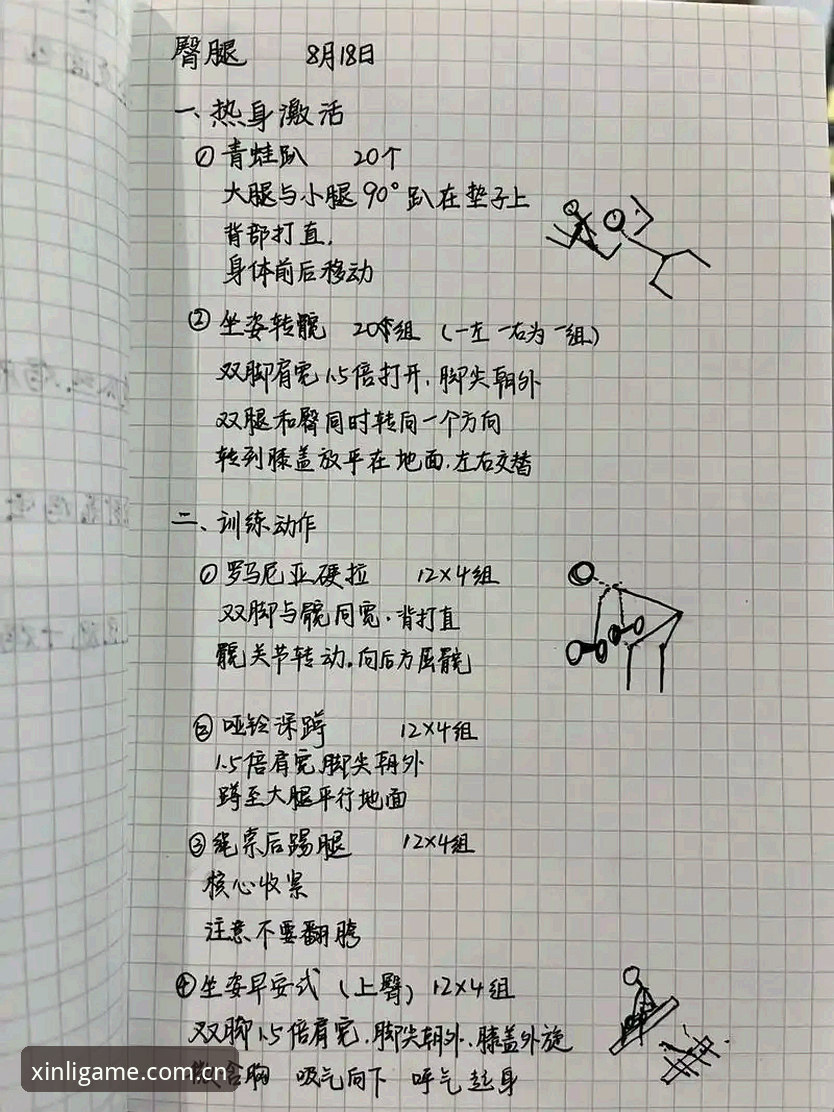 臀腿 8月18日
一、热身激活
① 青蛙趴 20个
大腿与小腿90°趴在垫子上
背部打直,
身体前后移动
② 坐姿转髋 20组 (一左一右为一组)
双脚肩宽1.5倍打开,脚尖朝外
双腿和臀同时转向一个方向
转到膝盖放平在地面,左右交替
二、训练动作
① 罗马尼亚硬拉 12×4组
双脚与髋同宽,背打直
髋关节转动。向后方屈髋
② 哑铃深蹲 12×4组
1.5倍肩宽,脚尖朝外
蹲至大腿平行地面
③ 绳索后踢腿 12×4组
核心收紧
注意不要翻胯
④ 坐姿早安式(上臀) 12×4组
双脚1.5倍肩宽,脚尖朝外,膝盖外旋
含胸 吸气向下 呼气起身
xinligame.com.cn